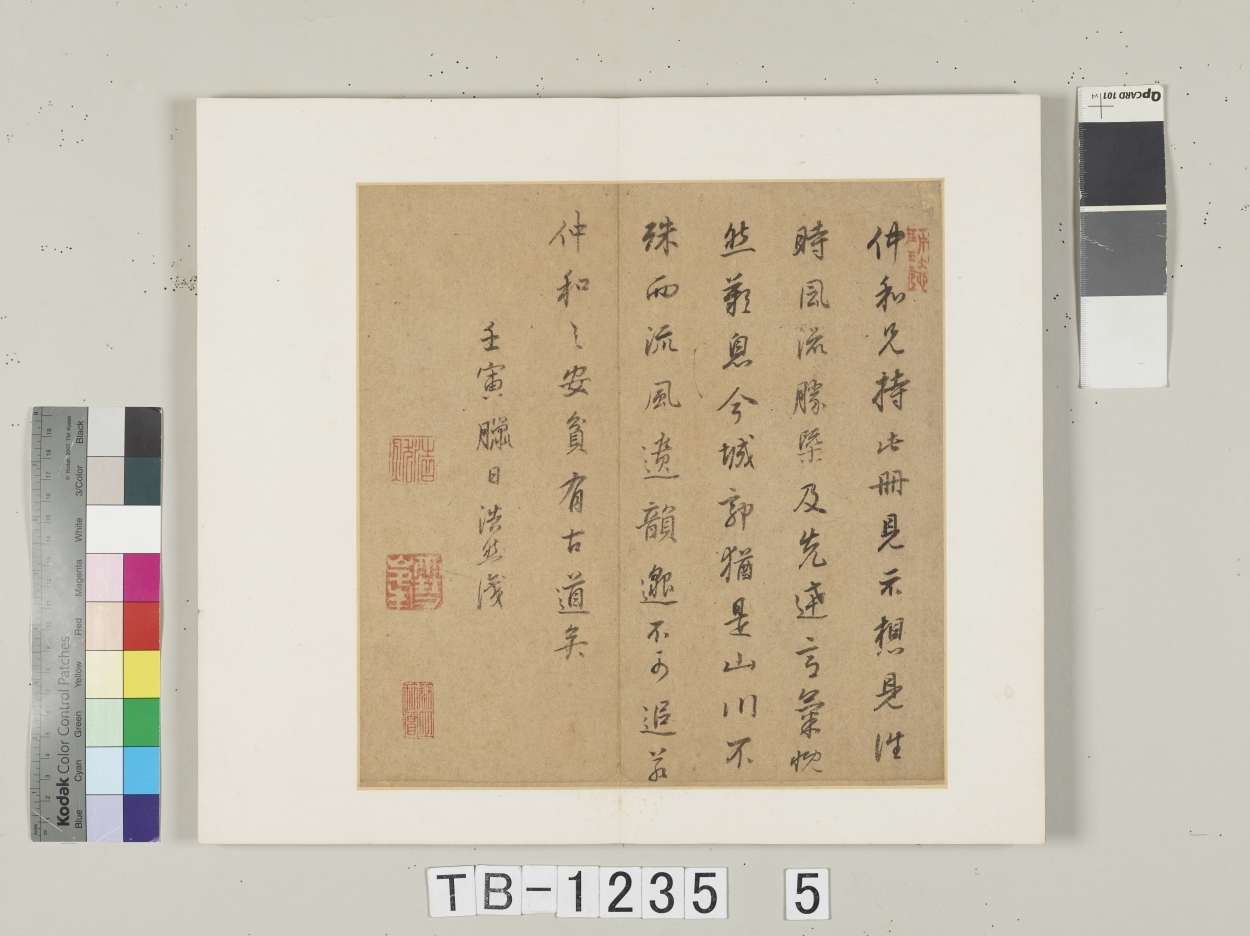 仲和兄持此冊見示想見往
時風流勝槩及先達言氣怳
然歎息今城郭猶是山川不
殊而流風遺韻邈不可追若
仲和之安貧有古道矣
壬寅臘日浩然識
QPCARD 101 v4
Kodak Color Control Patches
© Kodak, 2007 TM: Kodak
Blue Cyan Green Yellow Red Magenta White 3/Color Black
TB-1235 5